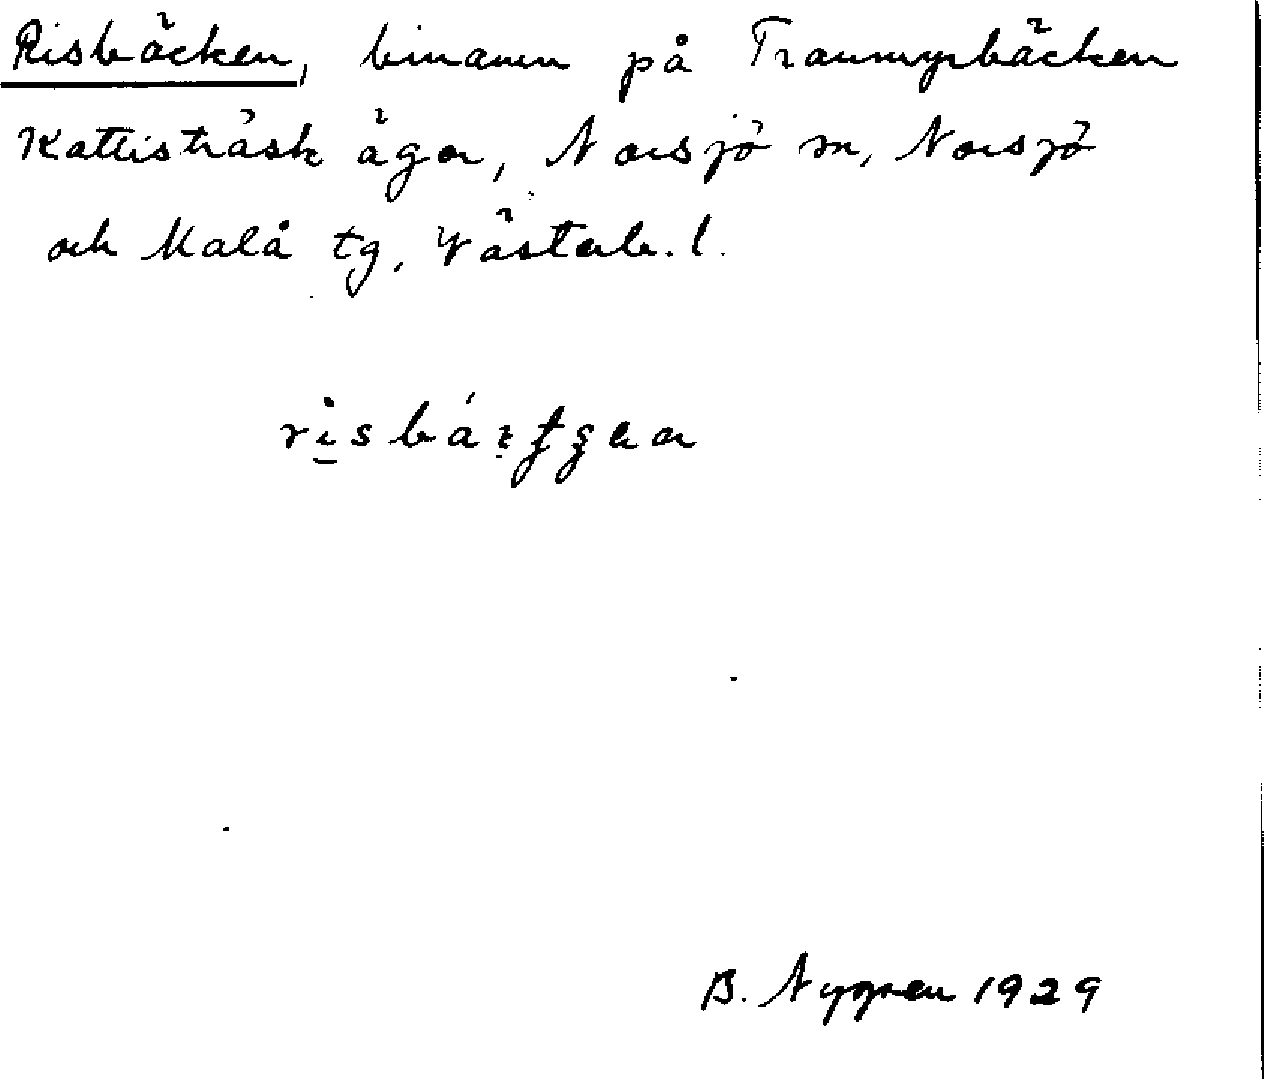 Risbäcken, binamn på Tranmyrbäcken
Kattisträsk ägor, Norsjö sn, Norsjö
och Malå tg, Västerb. l.
B. Nygren 1929